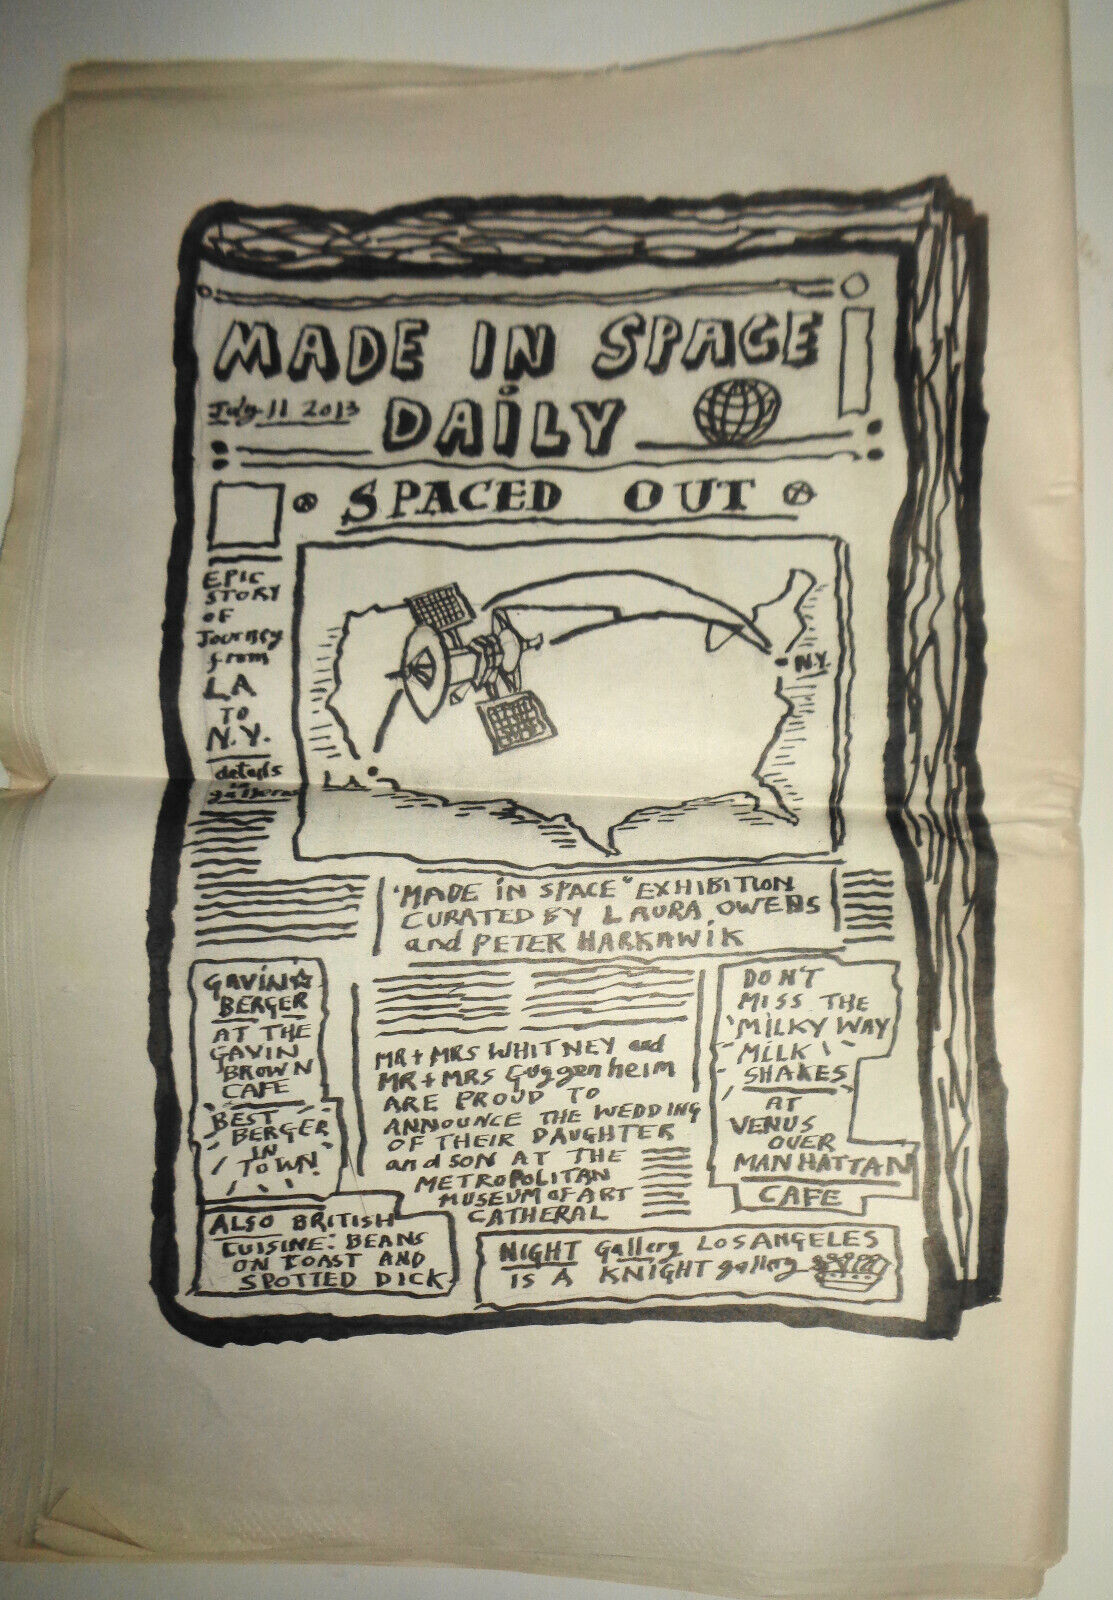 MADE IN SPACE
July 11 2013
DAiLY
SPACED OUT
EPIC
STORY
OF
JOURNEY
from
LA
TO
N.Y.
details
in
N.Y.
L.A.
'MADE iN SPACE" EXHIBITION
CURATED BY LAURA OWENS
and PETER HARKAWiK
GAViN'S
BERGER
AT THE
GAVIN
BROWN
CAFE
BEST
BERGER
IN
TOWN!
ALSO BRITISH
CUISINE: BEANS
ON TOAST AND
SPOTTED DICK
MR + MRS WHITNEY and
MR + MRS Guggenheim
ARE PROUD TO
ANNOUNCE THE WEDDING
OF THEIR DAUGHTER
and SON AT THE
METROPOLITAN
MUSEUM of ART
CATHERAL
DON'T
MISS THE
'MILKY WAY
MILK
SHAKES
AT
VENUS
OVER
MANHATTAN
CAFE
NIGHT Gallery LOSANGELES
IS A KNIGHT gallery